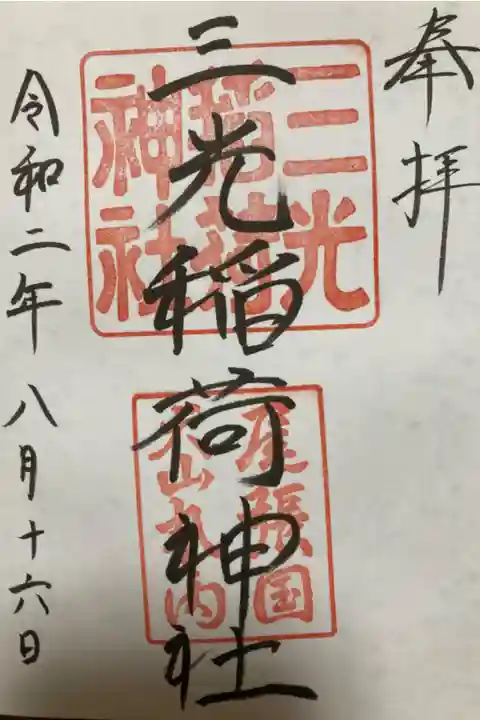 奉拝
三光稲荷神社
三光
稲荷
神社
尾張国
犬山丸内
令和二年 八月十六日